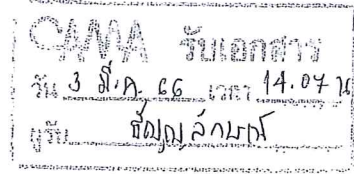 CAMA รับเอกสาร
วัน 3 มี.ค. 66 เวลา 14.07 น
ผู้รับ ธัญญลักษณ์